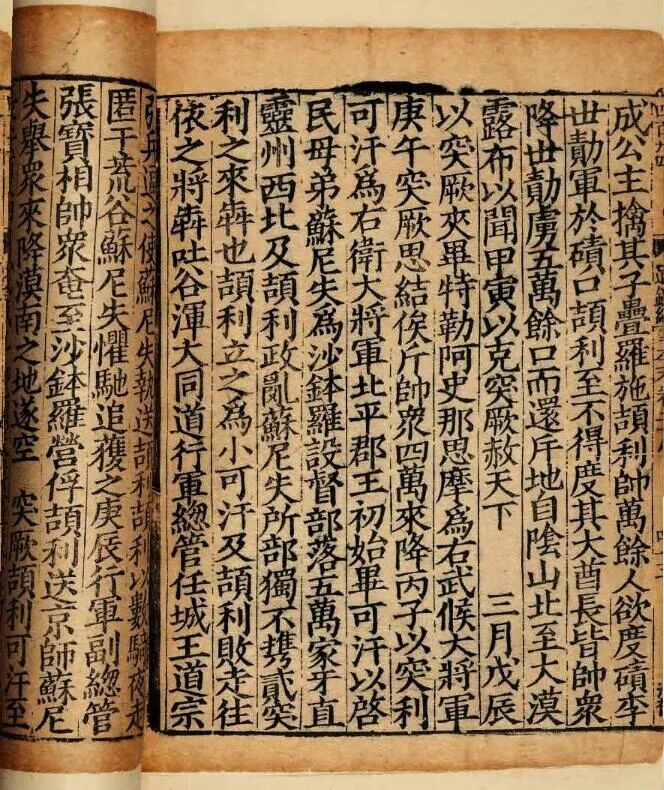 成公主擒其子疊羅施頡利帥萬餘人欲度磧李
世勣軍於磧口頡利至不得度其大酋長皆帥衆
降世勣虜五萬餘口而還斥地自陰山北至大漠
露布以聞甲寅以克突厥赦天下 三月戊辰
以突厥夾畢特勒阿史那思摩爲右武候大將軍
庚午突厥思結俟斤帥衆四萬來降丙子以突利
可汗爲右衛大將軍北平郡王初始畢可汗以啓
民母弟蘇尼失爲沙鉢羅設督部落五萬家牙直
靈州西北及頡利政亂蘇尼失所部獨不㩦貳突
利之來犇也頡利立之爲小可汗及頡利敗走往
依之將犇吐谷渾大同道行軍總管任城王道宗
之使蘇尼失執送頡利頡利以數騎夜走
匿于荒谷蘇尼失懼馳追獲之庚辰行軍副總管
張寶相帥衆奄至沙鉢羅營俘頡利送京師蘇尼
失舉衆來降漠南之地遂空 突厥頡利可汗至